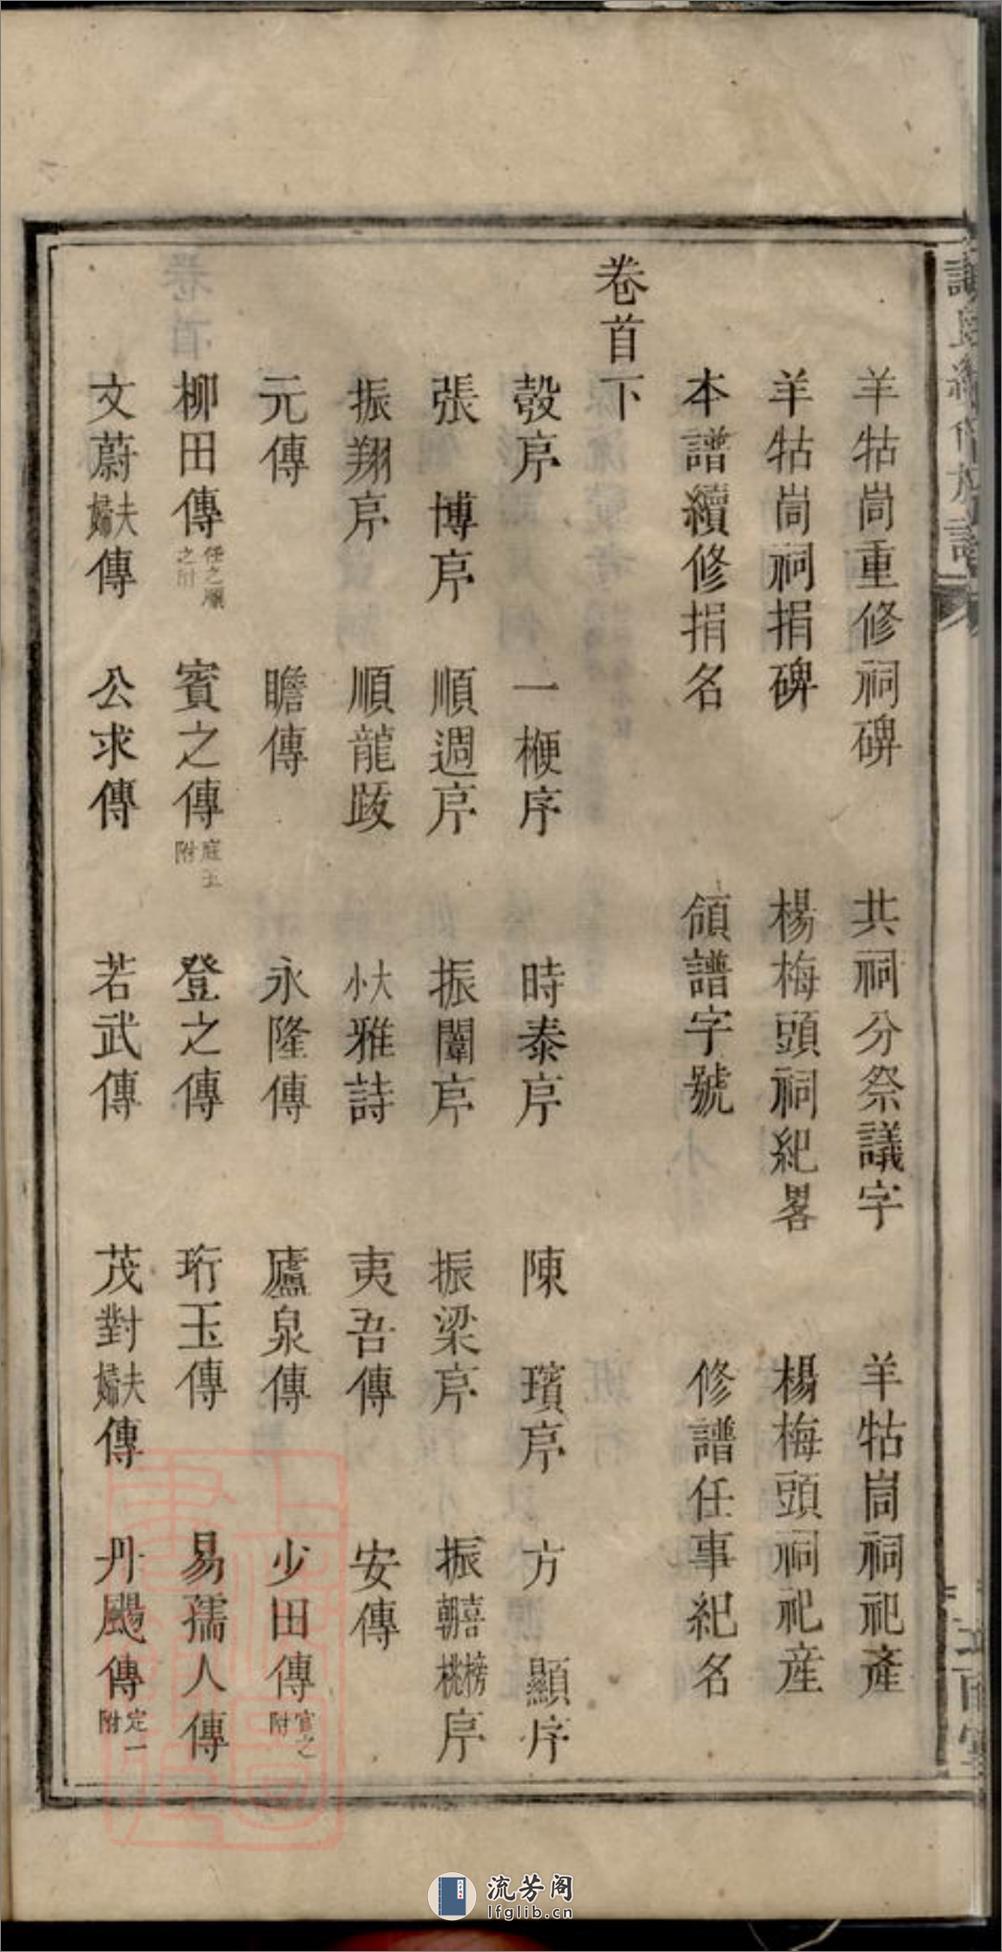 羊牯崗重修祠碑　共祠分祭議字　羊牯崗祠祀產
羊牯崗祠捐碑　楊梅頭祠紀畧　楊梅頭祠祀産
本譜續修捐名　領譜字號　修譜任事紀名
卷首下
彀序　一楩序　時泰序　陳瓆序　方顯序
張博序　順週序　振闈序　振梁序　振喜朝榜桃序
振翔序　順龍跋　大小雅詩　夷吾傳　安傳
元傳　瞻傳　永隆傳　廬泉傳　少田傳賓之附
柳田傳任之順之附　賓之傳庭玉附　登之傳　珩玉傳　易孺人傳
文蔚夫婦傳　公求傳　若武傳　茂對夫婦傳　丹颺傳定一附
流芳阁
lfglib.cn